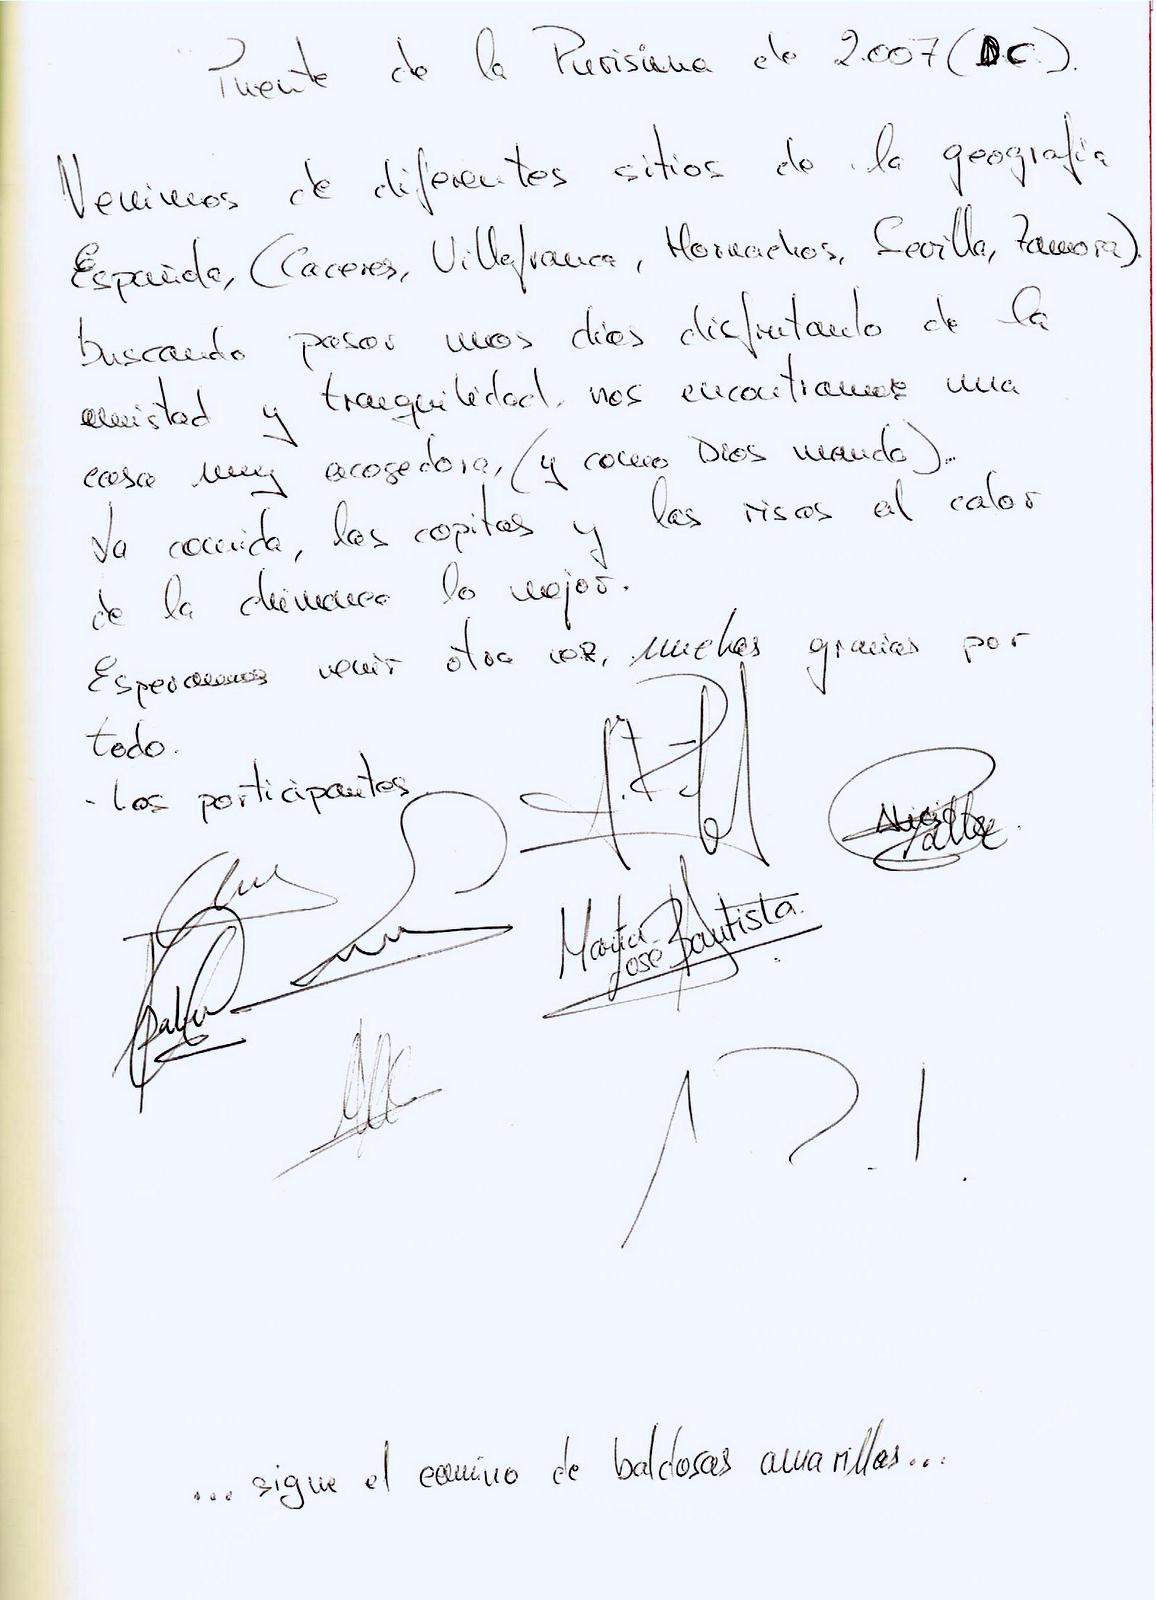 Puente de la Purisima de 2.007 (DC.).
Venimos de diferentes sitios de la geografía
Española, (Caceres, Villafranca, Hornachos, Sevilla, Zamora).
buscando pasar unos dias disfrutando de la
amistad y tranquilidad. nos encontramos una
casa muy acogedora, (y como Dios manda)...
La comida, las copitas y las risas al calor
de la chimenea lo mejor.
Esperamos venir otra vez, muchas gracias por
todo.
- Los participantes.
Maria
José Bautista.
... sigue el camino de baldosas amarillas...